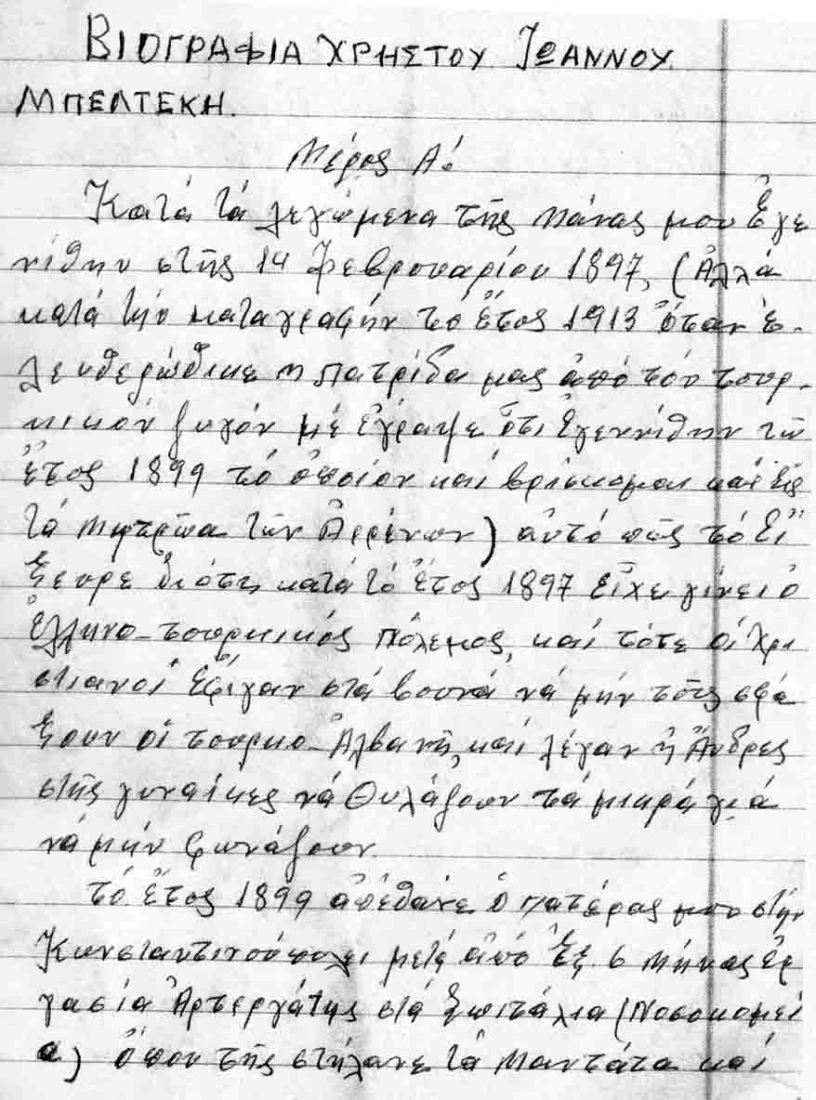 ΒΙΟΓΡΑΦΙΑ ΧΡΗΣΤΟΥ ΙΩΑΝΝΟΥ
ΜΠΕΛΤΕΚΗ.
Μέρος Α!
Κατά τά λεγώμενα τῆς Μάνας μου ἐγε
νίθην στῆς 14 Φεβρουαρίου 1897, (Ἀλλά
κατά τήν καταγραφήν τό ἔτος 1913 ὅταν ἐ-
λευθερώθικε η πατρίδα μας ἀπό τόν τουρ-
κικόν ζυγόν μέ ἔγραψε ὅτι ἐγεννίθην τῶ
ἔτος 1899 τό ὁποίον καί βρίσκομαι καί εἰς
τά Μητρῶα τῶν Ἀρρένων) αὐτό πῶς τό εἴ
ξευρε διότι κατά τό ἔτος 1897 εἶχε γίνει ὁ
ἑλληνο-τουρκικός πόλεμος, καί τότε οἱ Χρι
στιανοί ἐφίγαν στά βουνά νά μήν τούς σφά
ξουν οἱ τουρκο-Ἀλβανῆ, καί λέγαν ἡ Ἄνδρες
στῆς γυναίκες νά θυλάξουν τά μικρά γιά
νά μήν φωνάξουν.
τό ἔτος 1899 ἀπέθανε ὁ πατέρας μου στήν
Κωνσταντινούπολει μετά ἀπό ἕξ 6 Μήνας ἐρ
γασία Ἀρτεργάτης στά ξπιτάλια (Νοσοκομεί
α) ὅπου τῆς στήλανε τά Μαντάτα καί